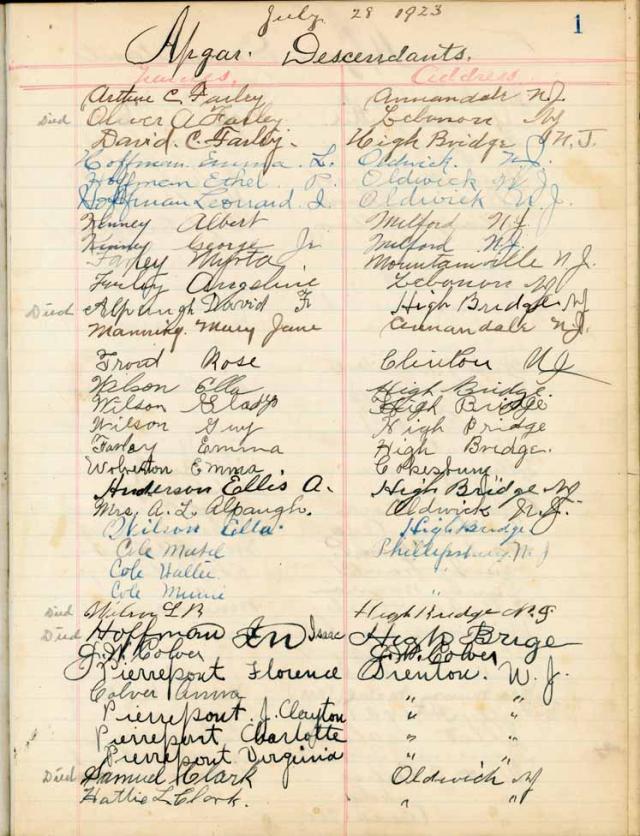 July 28 1923
1
Apgar Descendants.
Names, Address
Arthur C. Farley Annandale N.J.
Died Oliver A Farley Lebanon NJ
David. C. Farley. High Bridge N.J.
Hoffman Emma L. Oldwick. N.J.
Hoffman Ethel P. Oldwick N.J.
Hoffman Leonard Oldwick N.J.
Kinney Albert Milford N.J.
Kinney George Jr Milford N.J.
Farley Myrta Mountainville N.J.
Farley Angeline Lebanon NJ
Died Alpaugh David F High Bridge NJ
Manning. Mary Jane Annandale N.J.
Trout Rose Clinton NJ
Wilson Ella High Bridge.
Wilson Gladys High Bridge
Wilson Guy High Bridge
Farley Emma High Bridge.
Wolverton Emma Cokesburg
Anderson Ellis A. High Bridge NJ
Mrs. A. L. Alpaugh. Oldwick N.J.
Wilson Ella. High Bridge
Cole Mabel Phillipsburg N.J
Cole Hattie "
Cole Minnie "
Died Wilson L B High Bridge N.J
Died Hoffman Isaac High Brige
J. W. Colver J. W. Colver
Pierrepont Florence Trenton. N.J.
Colver Anna " "
Pierrepont. J. Clayton " "
Pierrepont Charlotte " "
Pierrepont Virginia " "
Died Samuel Clark Oldwick NJ
Hattie L. Clark. " "